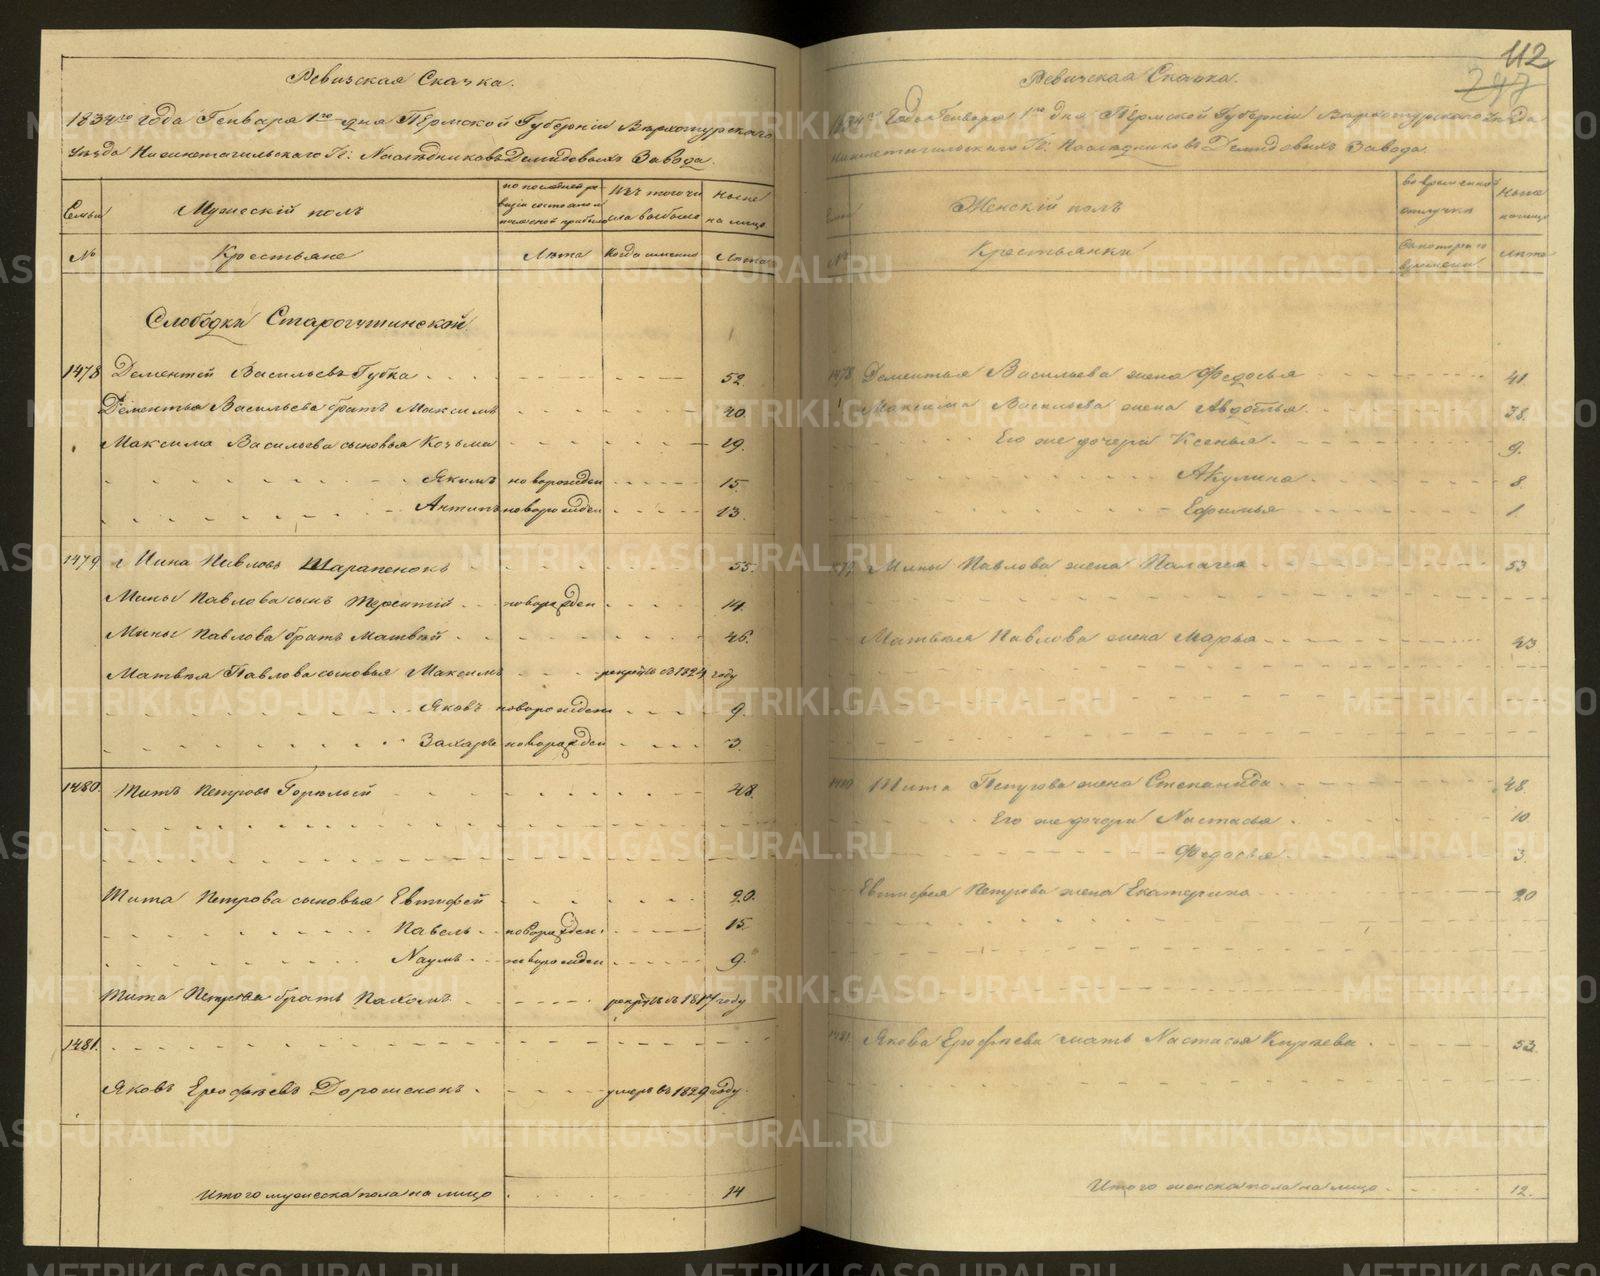 Ревизская Сказка.
1834го года Генваря 1го дня Пермской Губернии Верхотурского
Уезда Нижнетагильского Гг: Наследниковъ Демидовыхъ Завода.
Семьи
Мужескій полъ
по последней ре-
визіи состояло и
после оной прибыло
Изъ того чи-
сла выбыло
Ныне
на лицо
№
Крестьяне
Лета
Когда именно
Лета
Слободки Старогутинской
1478 Дементей Васильевъ Губка 52.
Дементья Васильева братъ Максимъ 40.
Максима Васильева сыновья Козьма 19.
Якимъ новорожден 15
Антипъ новорожден 13.
1479 Мина Павловъ Шарапенокъ 55.
Мины Павлова сынъ Терентій новоражден 14.
Мины Павлова братъ Матвей 46.
Матвея Павлова сыновья Максимъ рекрутъ съ 1824 году
Яковъ новорожден 9.
Захаръ новоражден 3.
1480 Титъ Петровъ Горелый 48.
Тита Петрова сыновья Евтифей 20.
Павелъ новоражден. 15.
Наумъ новорожден 9.
Тита Петрова братъ Пахомъ рекрутъ съ 1817 году
1481.
Яковъ Ерофеевъ Дорошенокъ умеръ въ 1829 году.
Итого мужеска пола на лицо 14
112
247
Ревизская Сказка.
1834го Года Генваря 1го дня Пермской Губерніи Верхотурского Уезда
Нижнетагильского Гг: Наследниковъ Демидовыхъ Завода.
Семьи
Женскій полъ
во временной
отлучке
Ныне
на лицо
№
Крестьянки
Съ которого
времени
Лета
1478 Дементья Васильева жена Федосья 41
Максима Васильева жена Авдотья 38.
Его же дочери Ксенья 9.
Акулина 8.
Ефимья 1.
1479 Мины Павлова жена Палагея 53
Матвея Павлова жена Марья 43
1480 Тита Петрова жена Степанида 48.
Его же дочери Настасья 10
Федосья 3.
Евтифея Петрова жена Екатерина 20
1481. Якова Ерофеева мать Настасья Киреева 53.
Итого женска пола на лицо 12.
METRIKI.GASO-URAL.RU